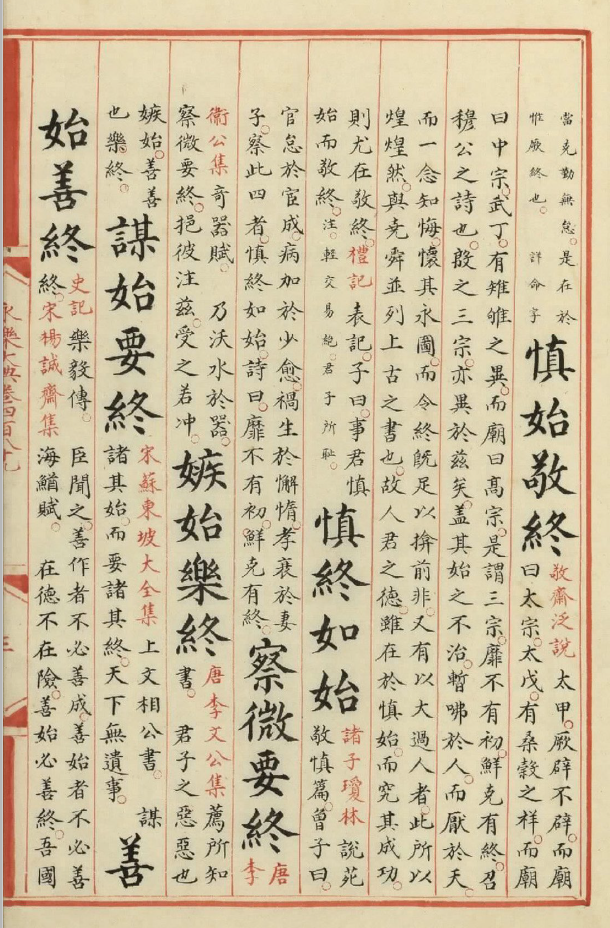 當克勤無怠。是在於
惟厥終也。 詳命字
慎始敬終
敬齋泛說 太甲。厥辟不辟。而廟
曰太宗。太戊。有桑穀之祥。而廟
曰中宗。武丁。有雉雊之異。而廟曰高宗。是謂三宗。靡不有初。鮮克有終。召
穆公之詩也。殷之三宗。亦異於茲矣。蓋其始之不治。暫咈於人。而厭於天。
而一念知悔。懷其永圖。而令終旣足以揜前非。又有以大過人者。此所以
煌煌然。與堯舜並列上古之書也。故人君之德。雖在於慎始。而究其成功。
則尤在敬終。禮記 表記。子曰。事君慎
始而敬終。注。輕交易絶。君子所恥。
慎終如始
諸子瓊林 說苑
敬慎篇。曾子曰。
官怠於宦成。病加於少愈。禍生於懈惰。孝衰於妻
子。察此四者。慎終如始。詩曰。靡不有初。鮮克有終。
察微要終
唐
李
衞公集 奇器賦。 乃沃水於器。
察微要終。挹彼注茲。受之若冲。
嫉始樂終
唐李文公集 薦所知
書。 君子之惡惡也
嫉始。善善
也樂終。
謀始要終
宋蘇東坡大全集 上文相公書。 謀
諸其始。而要諸其終。天下無遺事。
善
始善終
史記 樂毅傳。 臣聞之。善作者不必善成。善始者不必善
終。宋楊誠齋集 海鰌賦。 在德不在險。善始必善終。吾國
永樂大典卷四百八十九
三